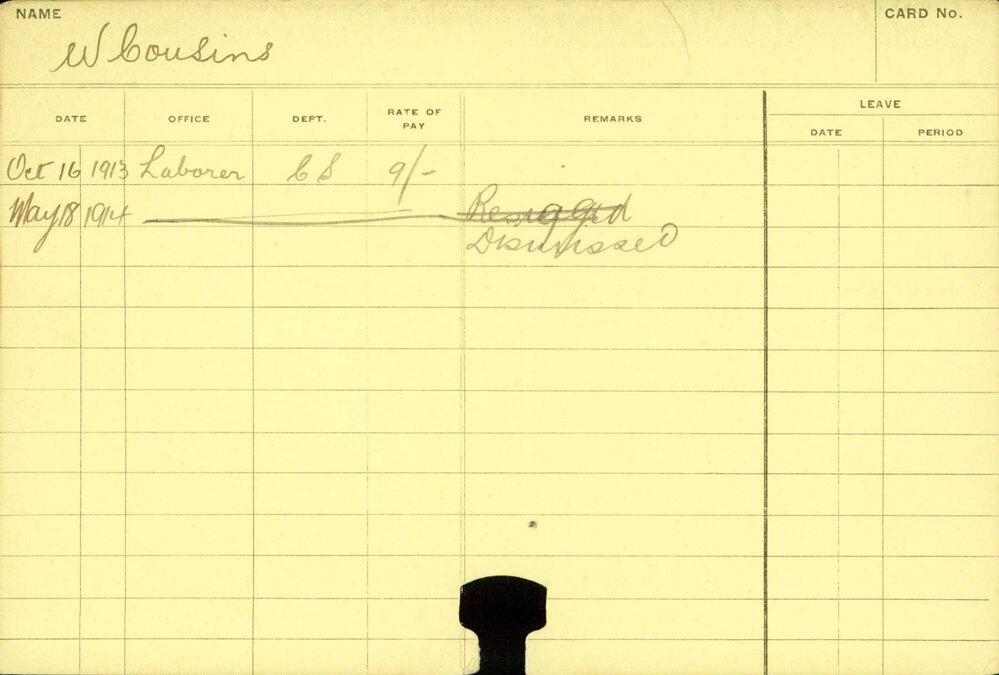 NAME
CARD No.
W Cousins
LEAVE
DATE OFFICE DEPT. RATE OF PAY REMARKS DATE PERIOD
Oct 16 1913 Laborer C S 9/-
May 18 1914 Resigned
Dismissed